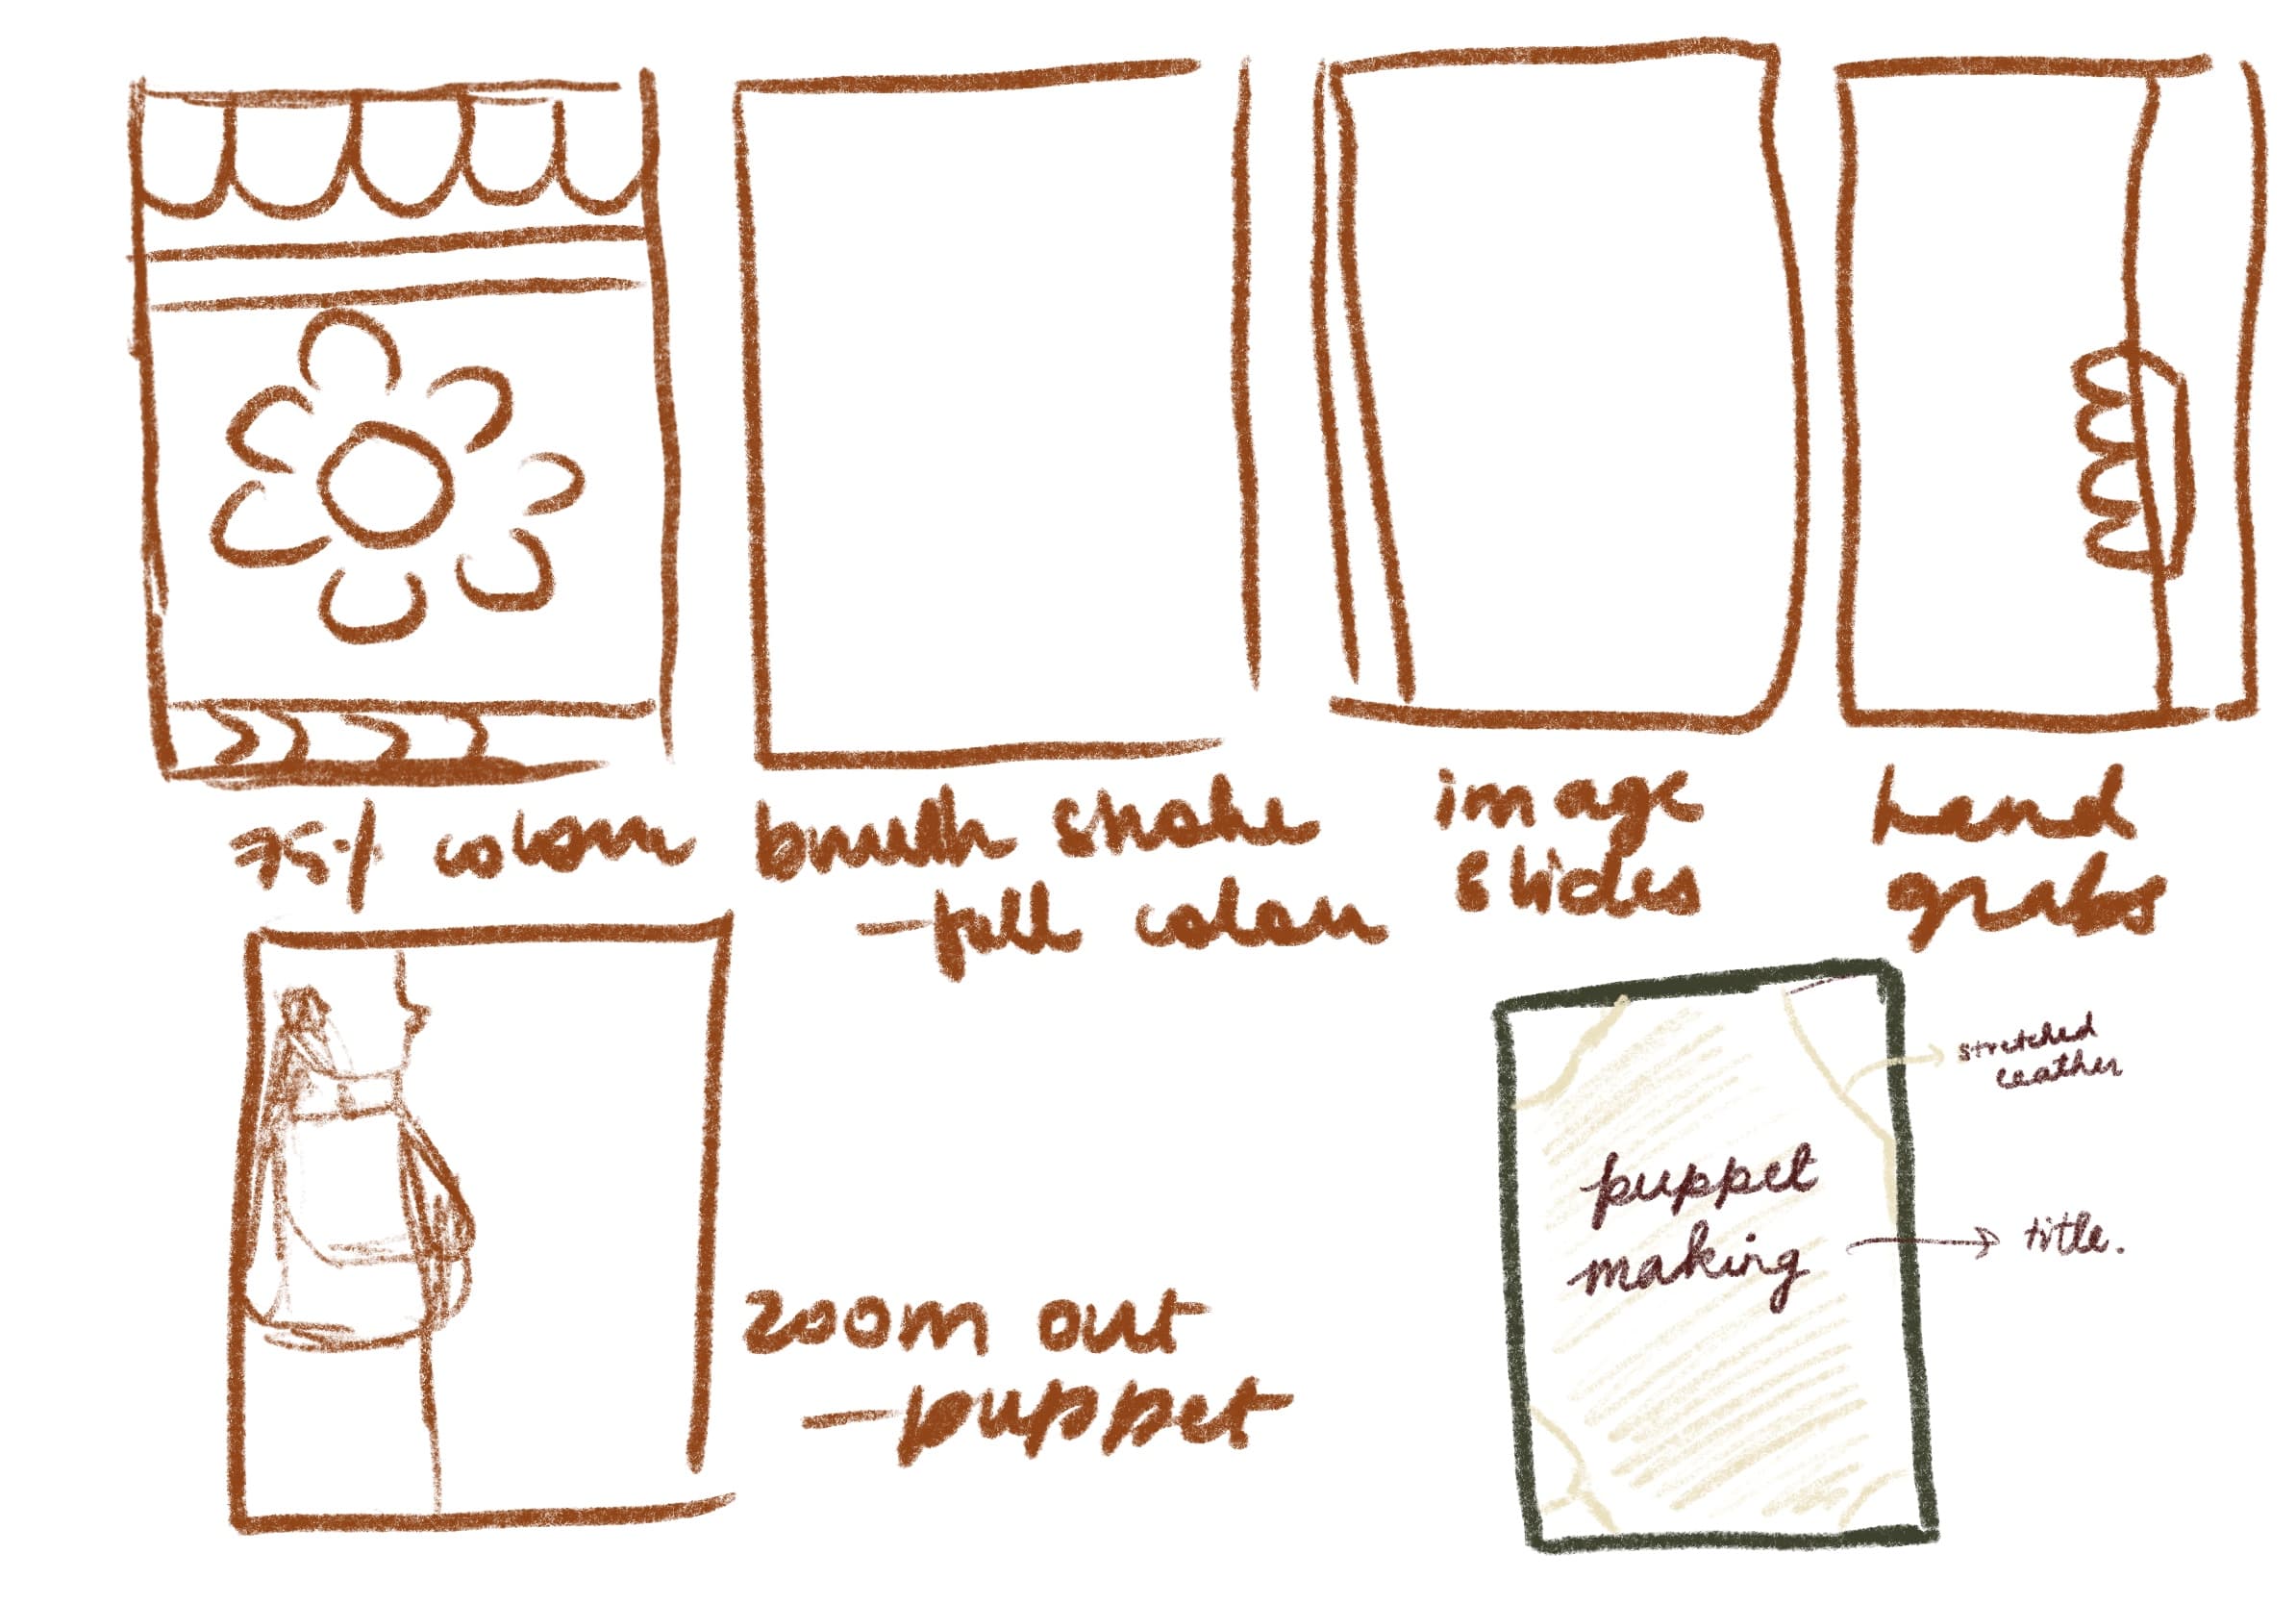 75% colour
brush stroke
- full colour
image
slides
hand
grabs
zoom out
- puppet
puppet
making
stretched
leather
title.